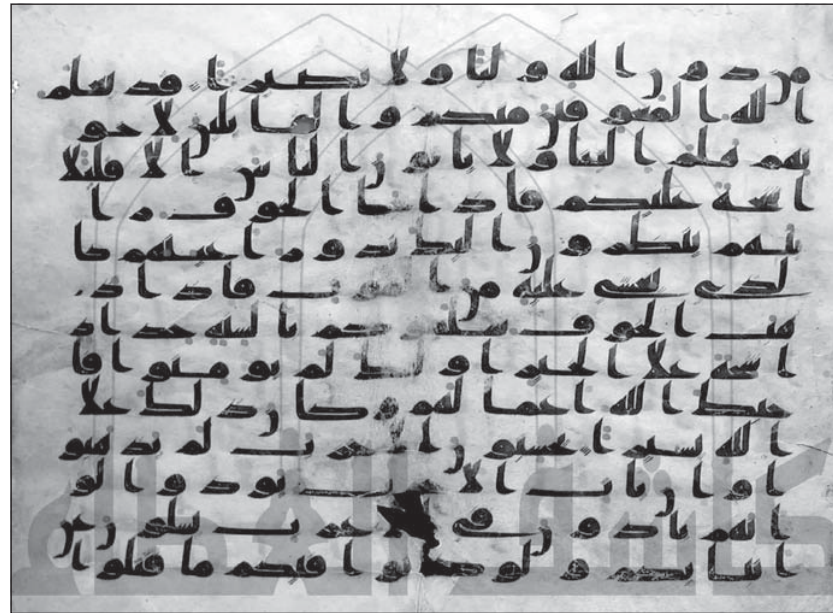 من دون الله وليا ولا نصيرا قد يعلم
الله المعوقين منكم والقائلين لاخو
نهم هلم الينا ولا ياتون الباس الا قليلا
اشحة عليكم فاذا جا الخوف را
يتهم ينظرون اليك تدور اعينهم كا
لذي يغشى عليه من الموت فاذا ذ
هب الخوف سلقوكم بالسنة حداد
اشحة علا الخير اولئك لم يومنوا فا
حبط الله اعملهم وكان ذلك علا
الله يسيرا يحسبون الاحزاب لم يذهبو
ا وان يات الاحزاب يودوا لو
انهم بادون في الاعراب يسلون عن
انبائكم ولو كانوا فيكم ما قتلوا ا
كاشف الغطاء